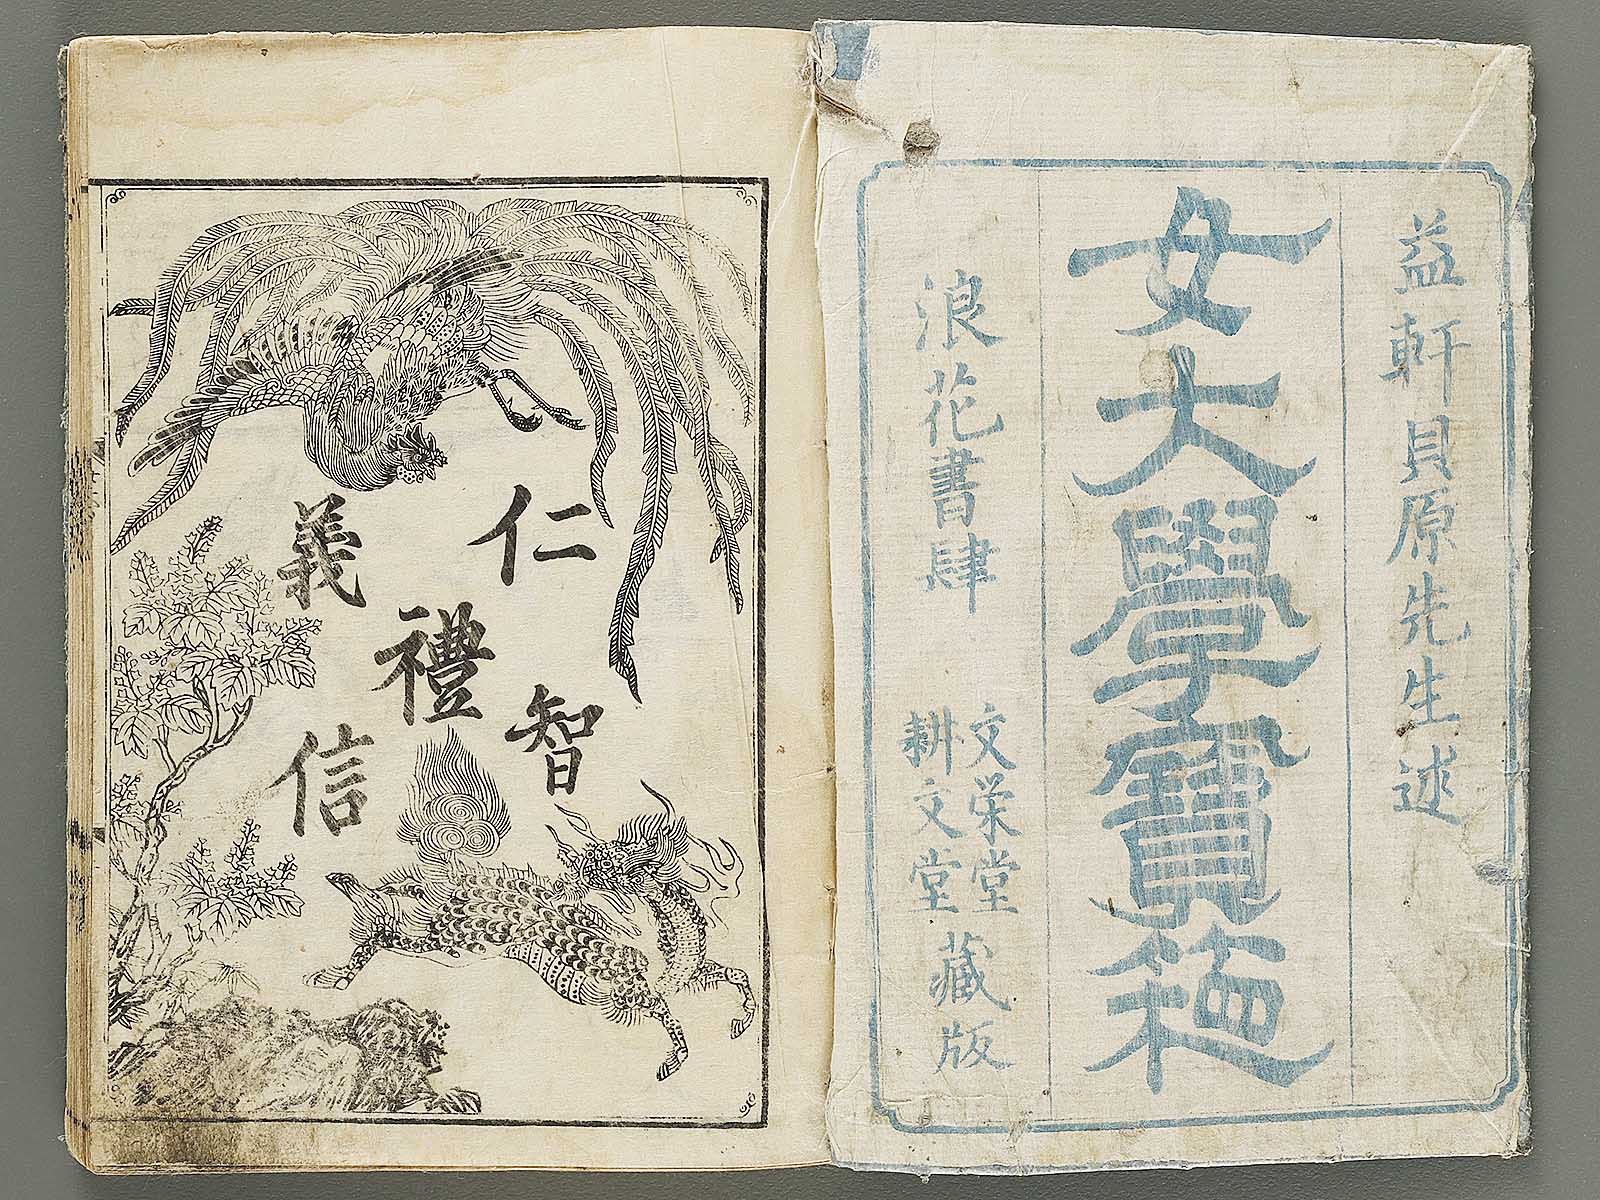 益軒貝原先生述
女大學寶箱
浪花書肆
文栄堂
耕文堂
藏版
仁
義
禮
智
信